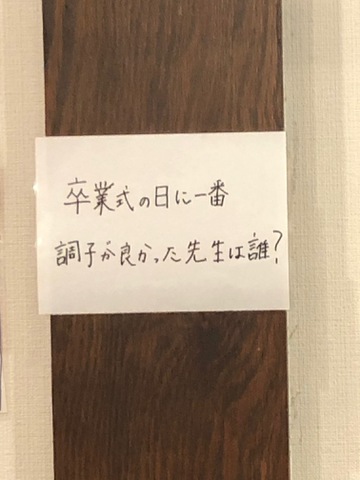 卒業式の日に一番
調子が良かった先生は誰?